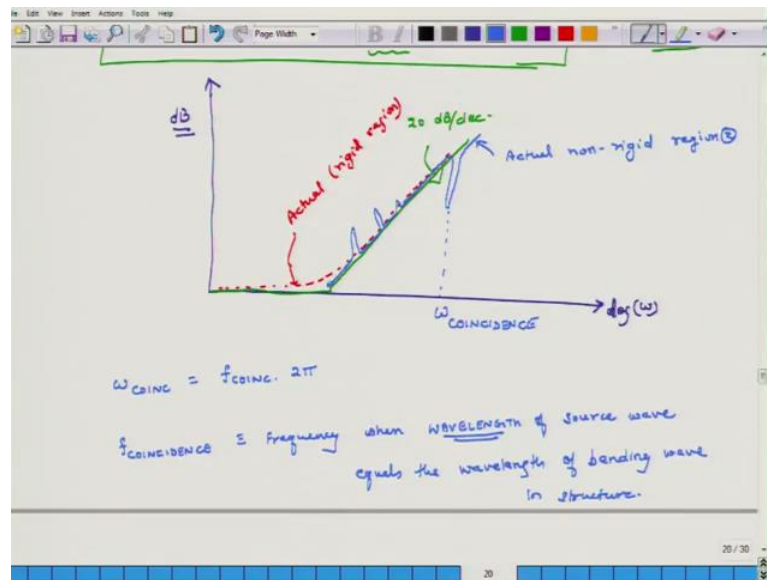 File Edit View Insert Actions Tools Help
Page Width
B I
dB
Actual (rigid region)
20 dB/dec.
Actual non-rigid region ②
ω COINCIDENCE
log(ω)
ω COINC = f COINC. 2π
f COINCIDENCE ≡ Frequency when WAVELENGTH of source wave
equals the wavelength of bending wave
in structure.
20 / 30
20